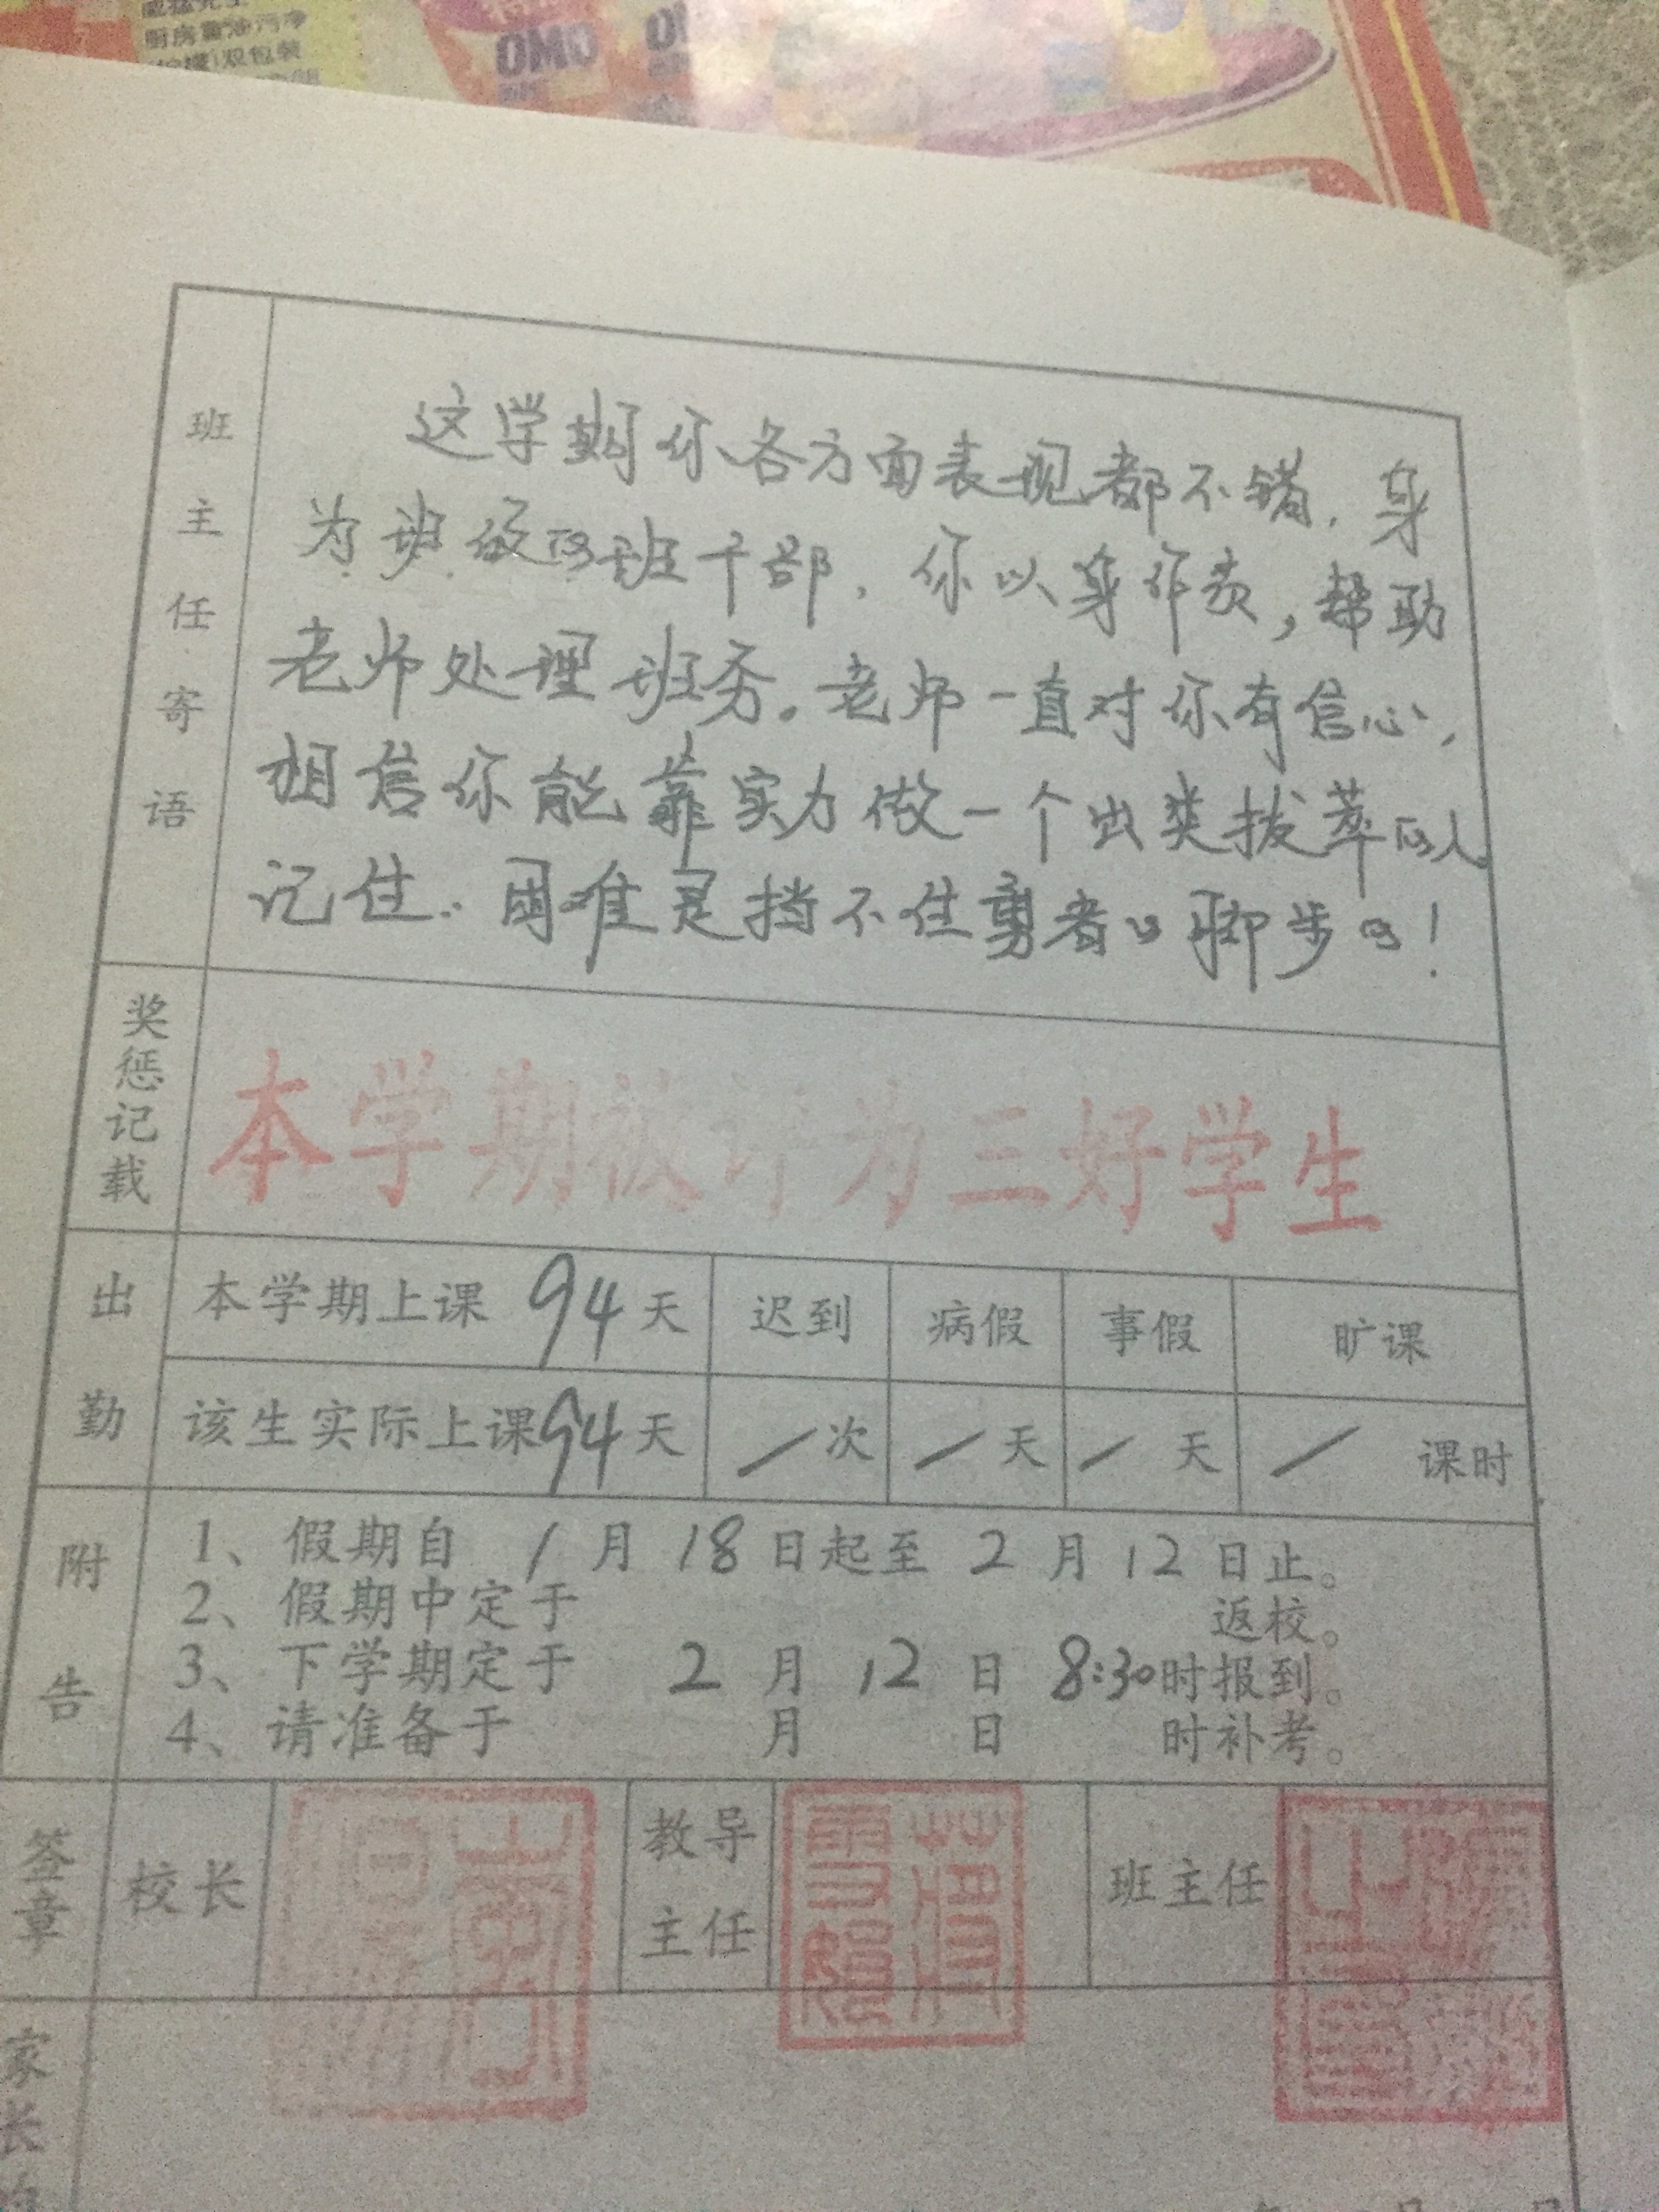 厨房重油污净
双包装
OMO
班主任寄语
这学期你各方面表现都不错,身
为班级的班干部,你以身作责,帮助
老师处理班务。老师一直对你有信心,
相信你能靠实力做一个出类拔萃的人。
记住:困难是挡不住勇者的脚步的!
奖惩记载
本学期被评为三好学生
出勤
本学期上课 94 天 迟到 病假 事假 旷课
该生实际上课 94 天 / 次 / 天 / 天 / 课时
附告
1、假期自 1 月 18 日起至 2 月 12 日止。
2、假期中定于 返校。
3、下学期定于 2 月 12 日 8:30时报到。
4、请准备于 月 日 时补考。
签章 校长 教导主任 班主任
家长